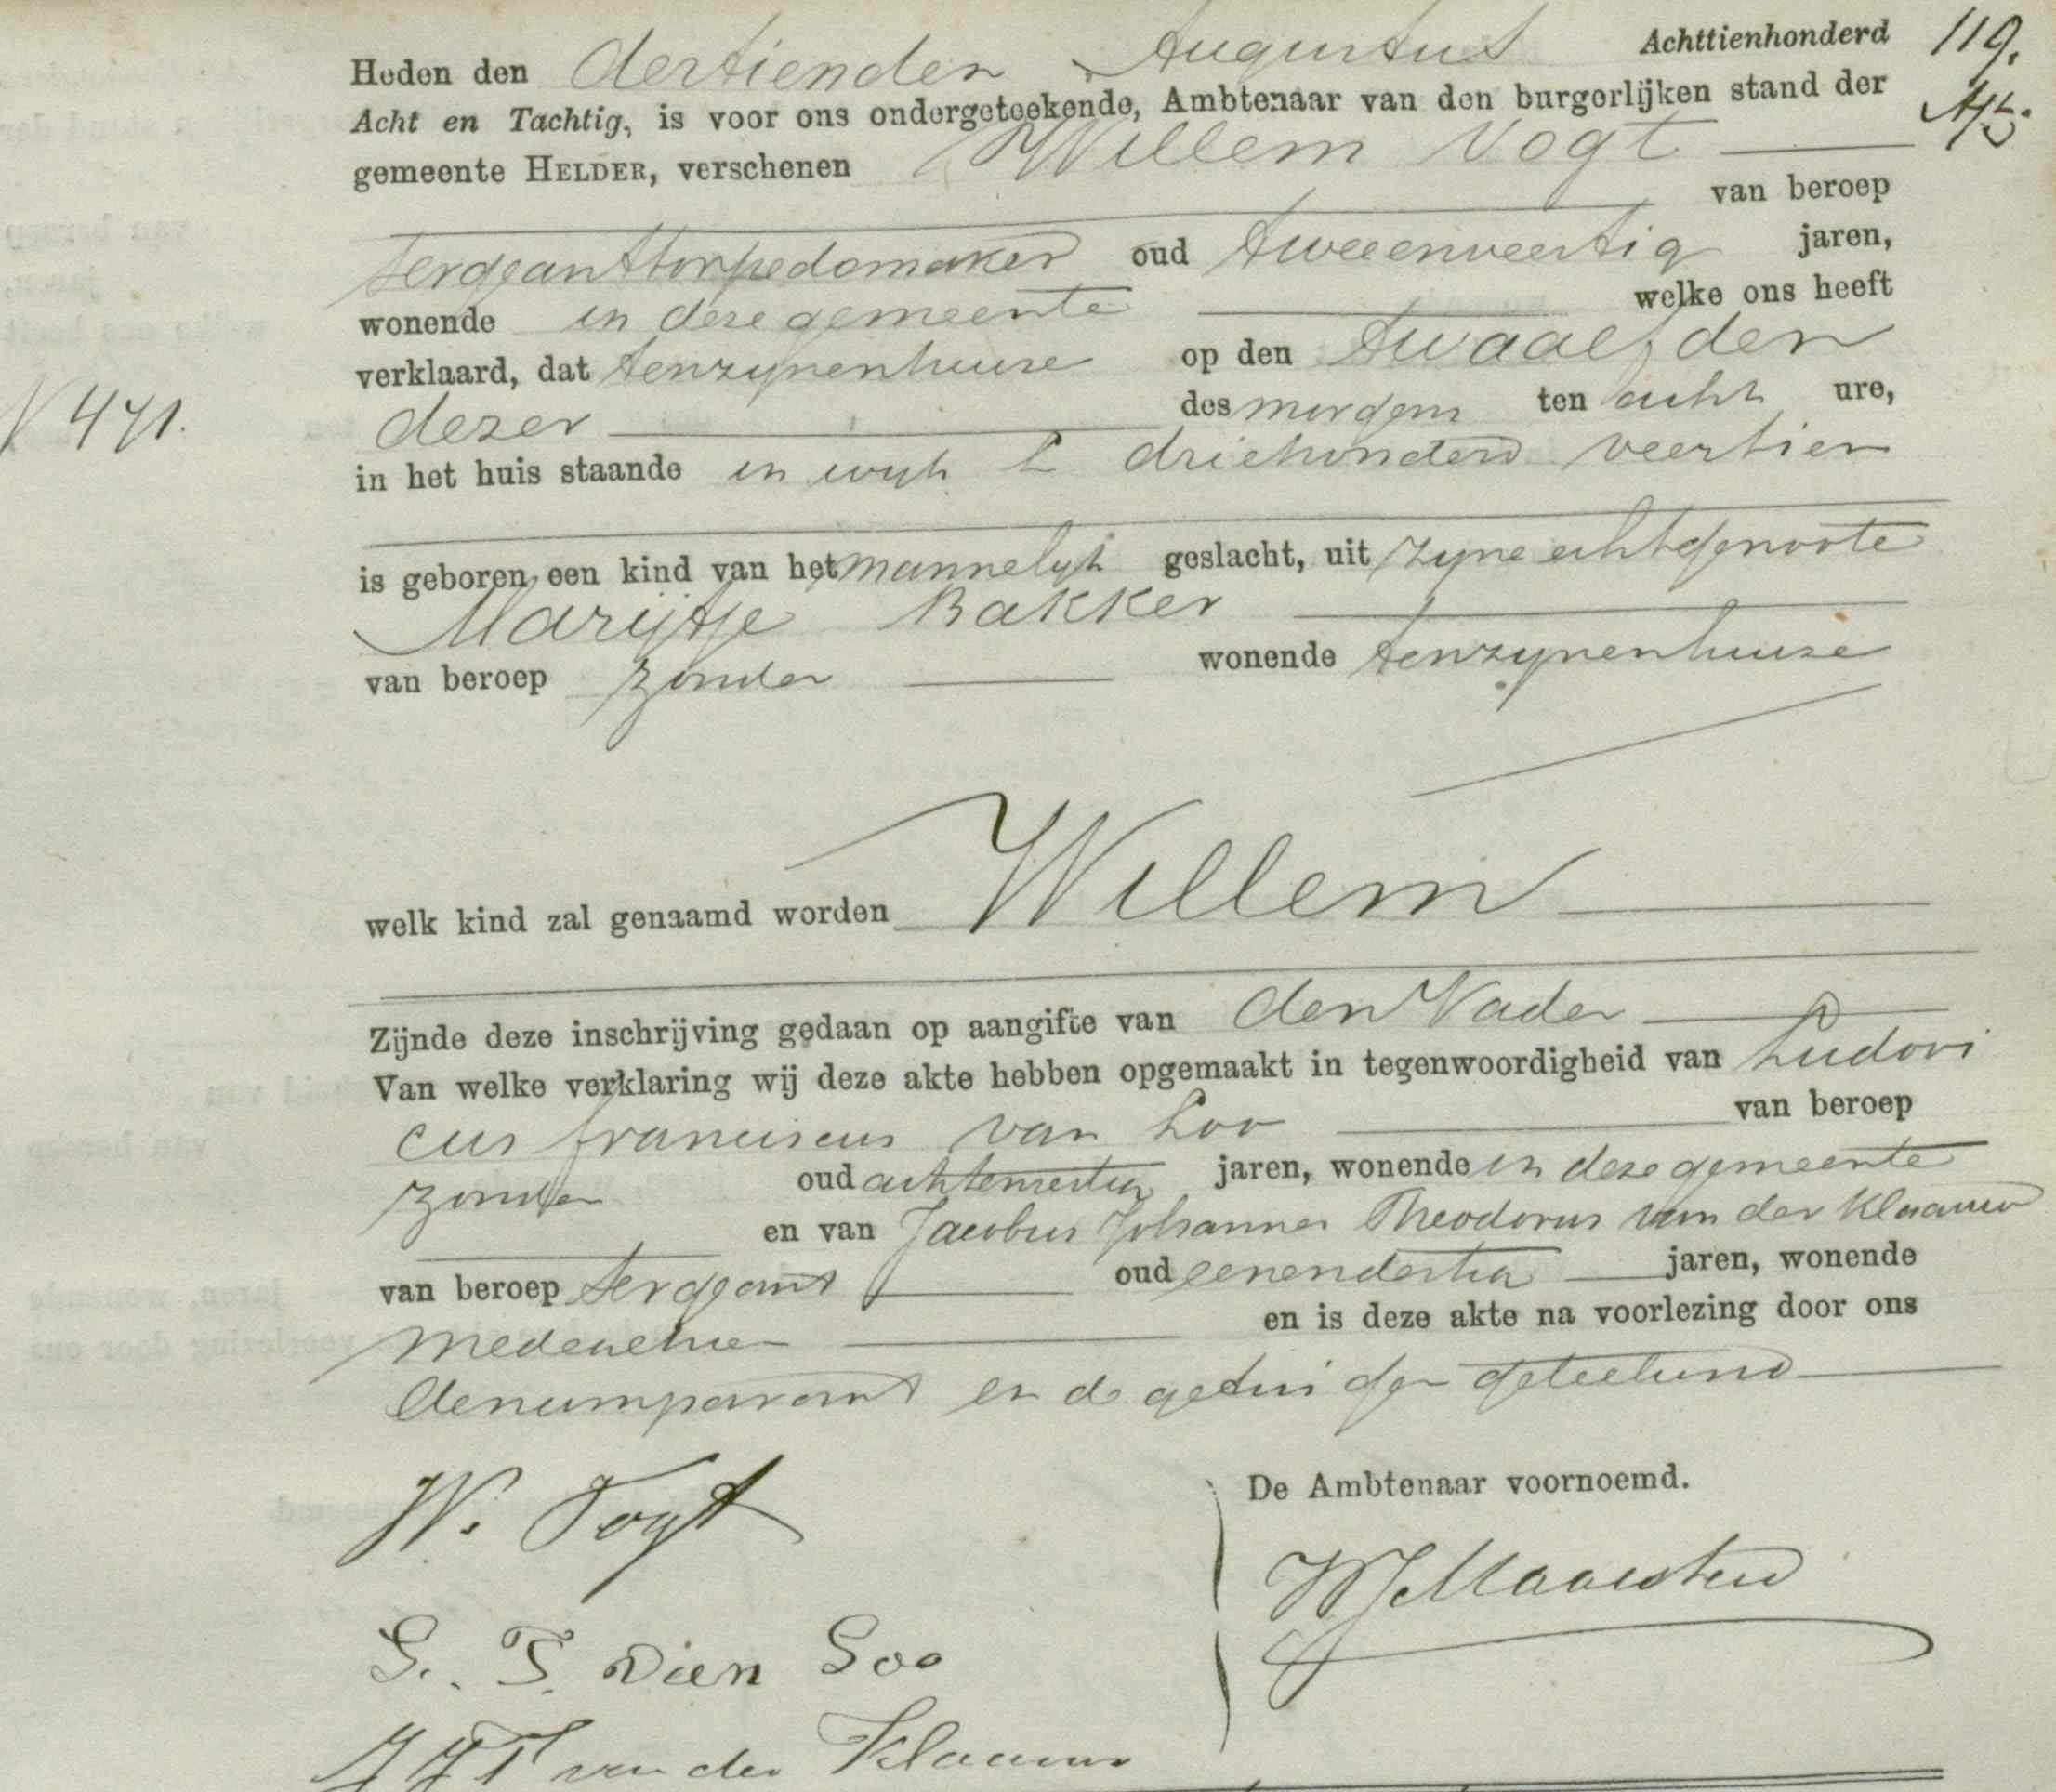 Heden den dertienden Augustus Achttienhonderd 119.
Acht en Tachtig, is voor ons ondergeteekende, Ambtenaar van den burgerlijken stand der
gemeente HELDER, verschenen Willem Vogt
van beroep
sergeanttorpedomaker oud tweeenveertig jaren,
wonende in deze gemeente welke ons heeft
verklaard, dat tenzynenhuize op den twaalfden
N 471. dezer des morgens ten acht ure,
in het huis staande in wyk L driehonderd veertien
is geboren een kind van het mannelyk geslacht, uit zyne echtgenoote
Marijtje Bakker
van beroep zonder wonende tenzynenhuize
welk kind zal genaamd worden Willem
Zijnde deze inschrijving gedaan op aangifte van den Vader
Van welke verklaring wij deze akte hebben opgemaakt in tegenwoordigheid van Ludovi
cus franciscus van Loo van beroep
zonder oud jaren, wonende in deze gemeente
en van Jacobus Johannes Theodorus van der Klaauw
van beroep sergeant oud eenendertig jaren, wonende
mede alhier en is deze akte na voorlezing door ons
den comparant en de getuigen geteekend
W. Vogt
De Ambtenaar voornoemd.
L. F. van Loo
J J T van der Klaauw